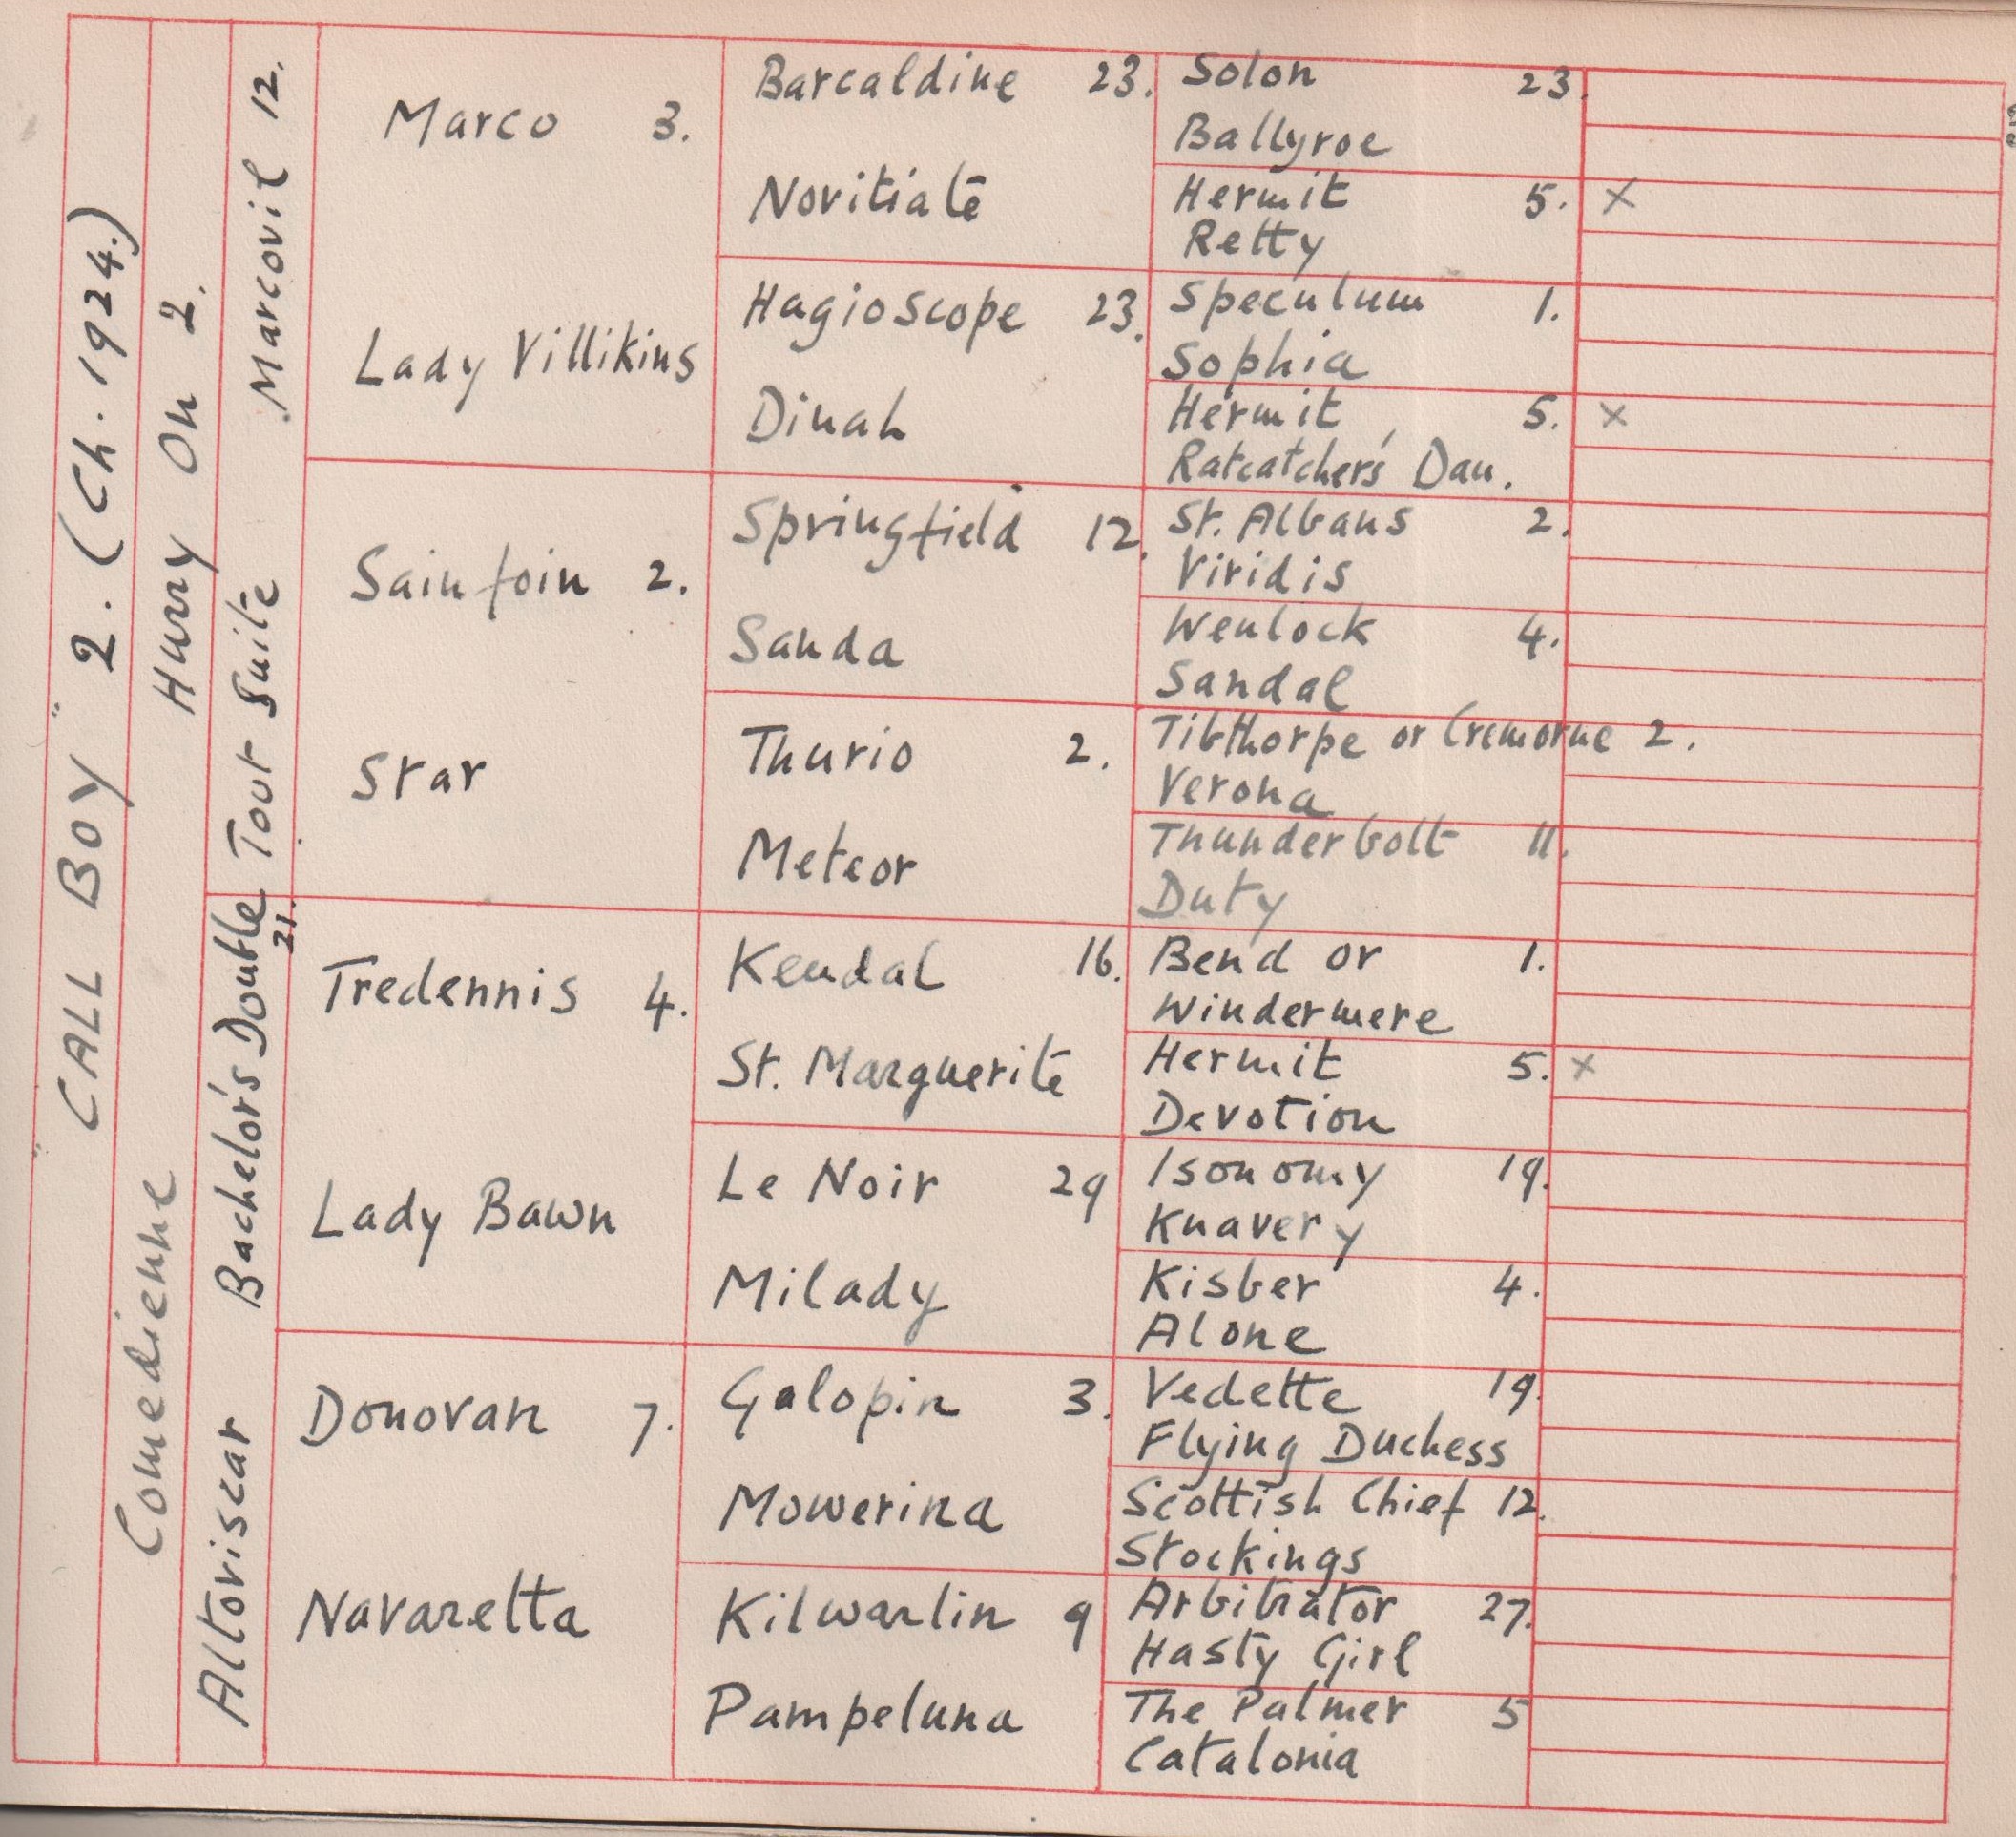 "CALL BOY" 2. (Ch. 1924.)
Hurry On 2.
Comedienne
Marcovil 12.
Tout Suite
Bachelor's Double 21.
Altoviscar
Marco 3.
Lady Villikins
Sainfoin 2.
Star
Tredennis 4.
Lady Bawn
Donovan 7.
Navaretta
Barcaldine 23.
Novitiate
Hagioscope 23.
Dinah
Springfield 12.
Sanda
Thurio 2.
Meteor
Kendal 16.
St. Marguerite
Le Noir 29
Milady
Galopin 3.
Mowerina
Kilwarlin 9
Pampeluna
Solon 23.
Ballyroe
Hermit 5. x
Retty
Speculum 1.
Sophia
Hermit 5. x
Ratcatcher's Dau.
St. Albans 2.
Viridis
Wenlock 4.
Sandal
Tibthorpe or Cremorne 2.
Verona
Thunderbolt 11.
Duty
Bend or 1.
Windermere
Hermit 5. x
Devotion
Isonomy 19.
Knavery
Kisber 4.
Alone
Vedette 19.
Flying Duchess
Scottish Chief 12.
Stockings
Arbitrator 27.
Hasty Girl
The Palmer 5
Catalonia